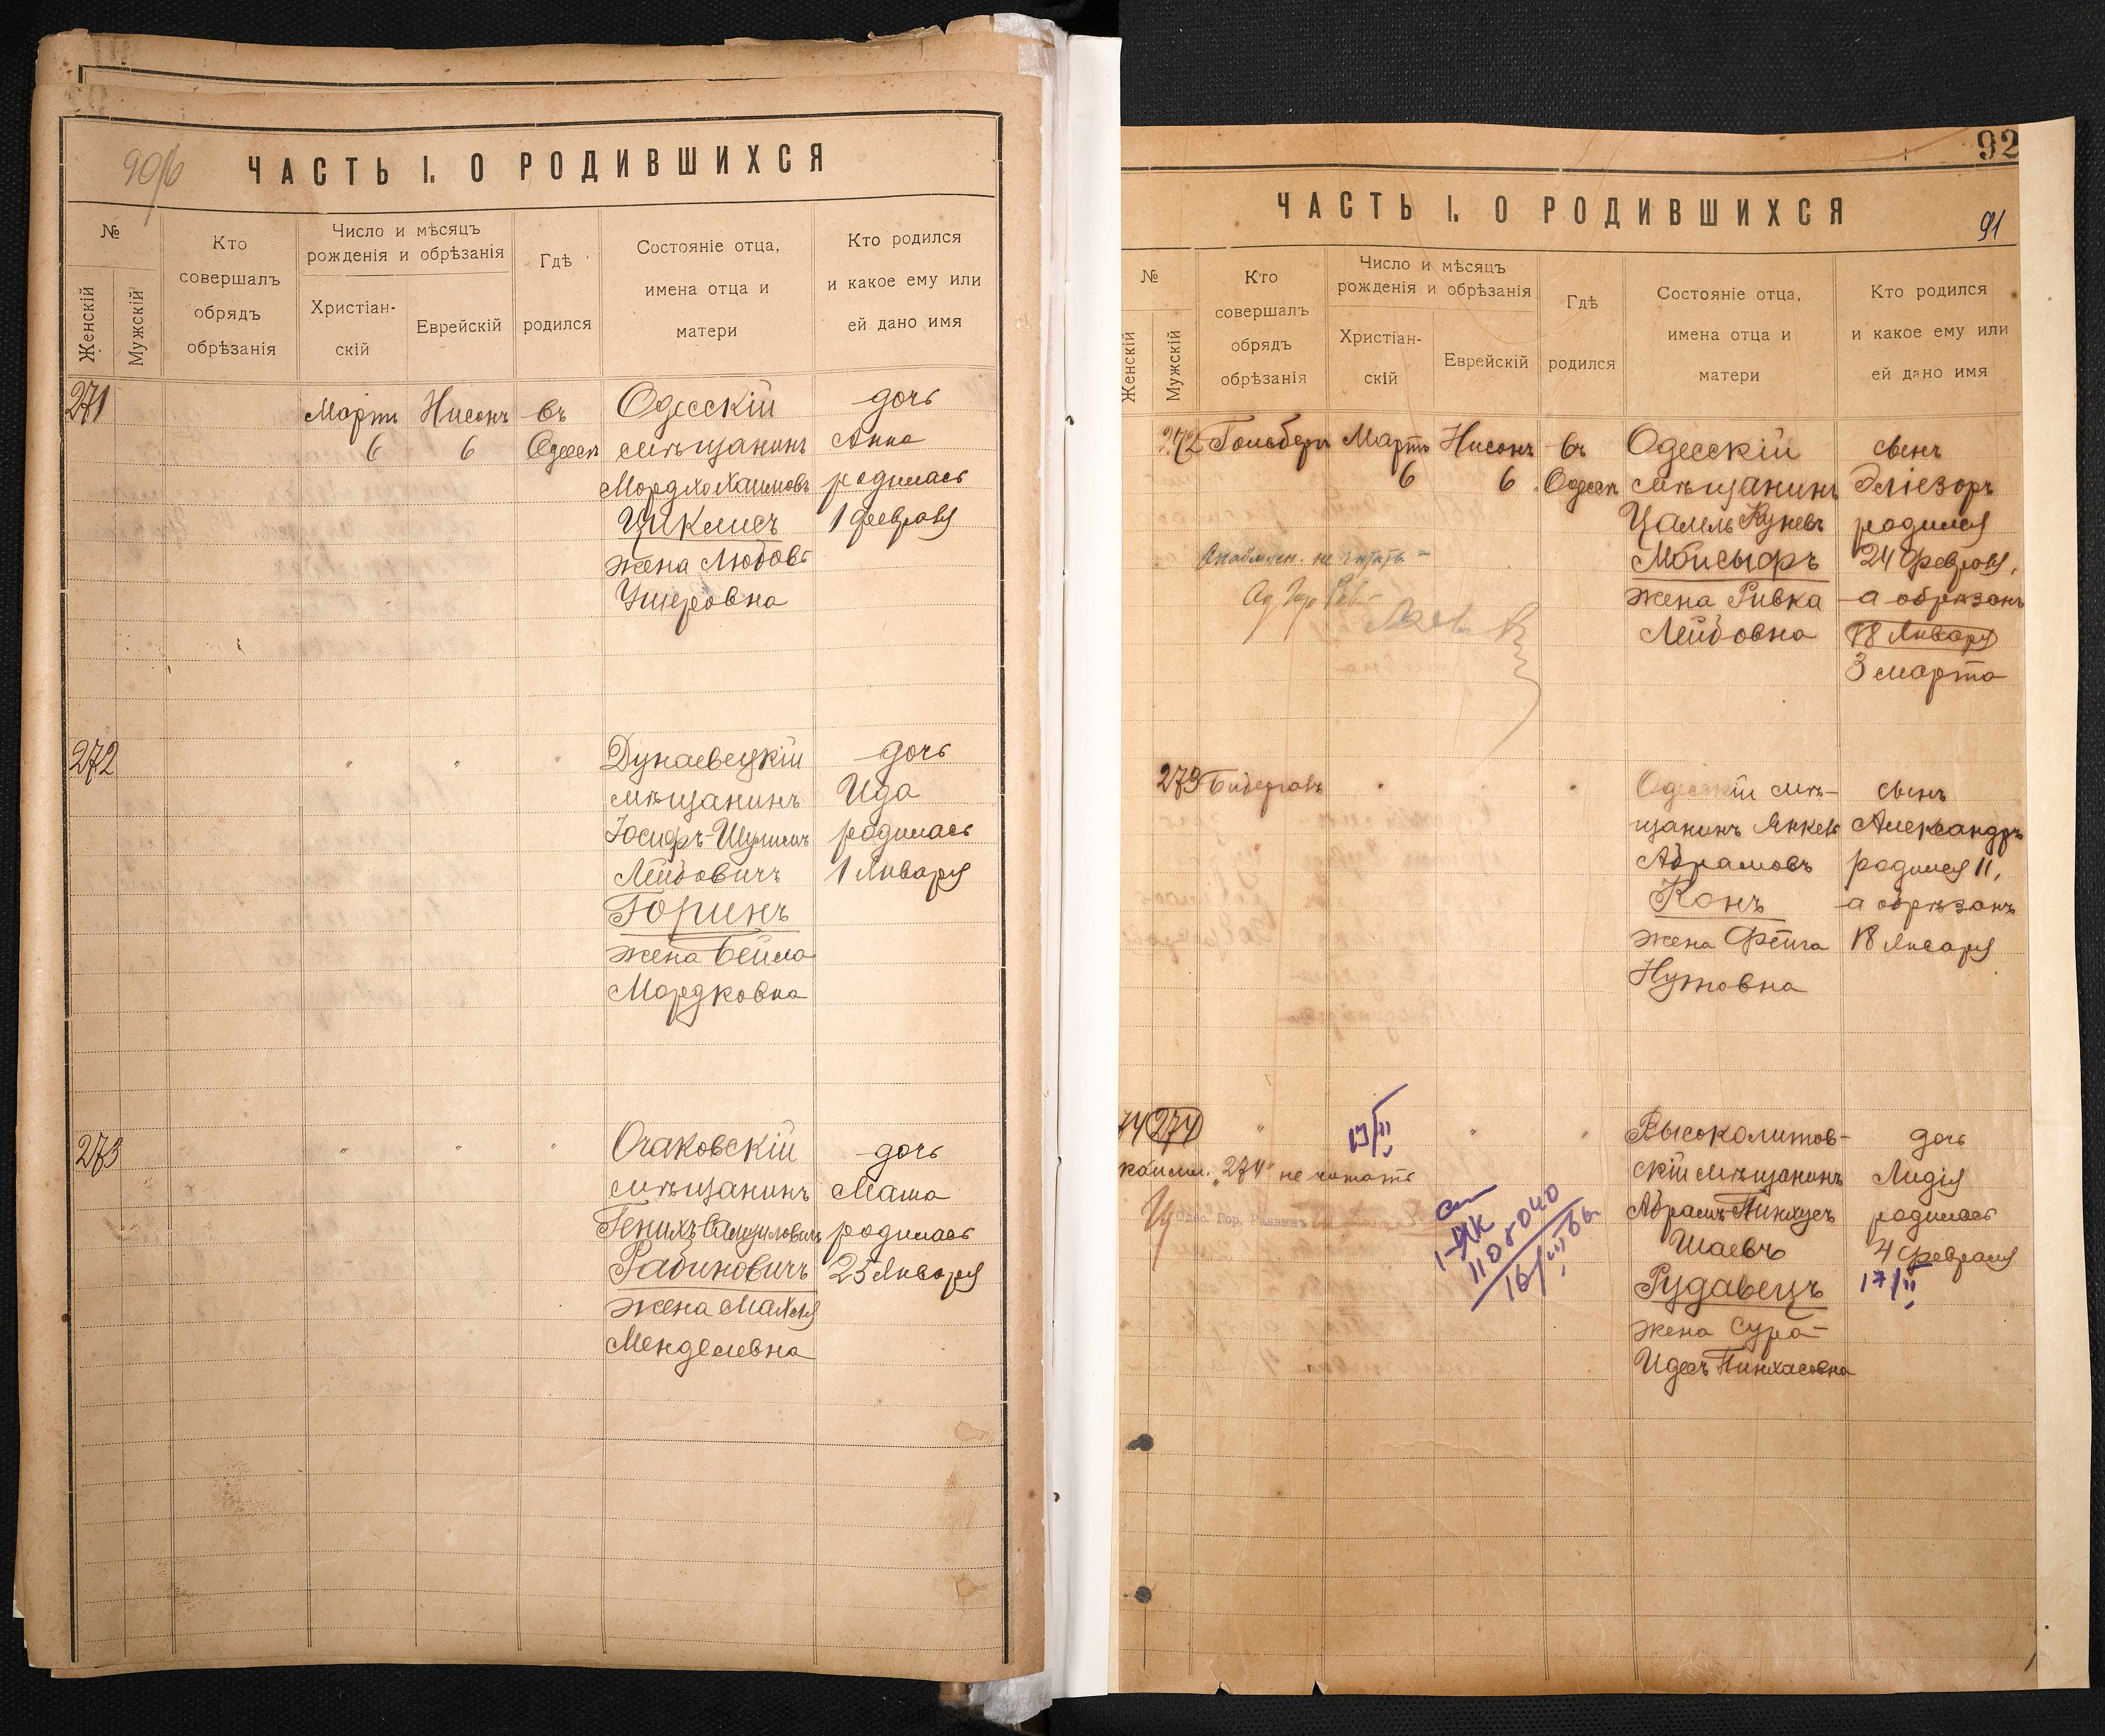 90/б
ЧАСТЬ I. О РОДИВШИХСЯ
№
Женскій
Мужскій
Кто
совершалъ
обрядъ
обрѣзанія
Число и мѣсяцъ
рожденія и обрѣзанія
Христіан-
скій
Еврейскій
Гдѣ
родился
Состояніе отца,
имена отца и
матери
Кто родился
и какое ему или
ей дано имя
271
Мартъ
6
Нисонъ
6
въ
Одессѣ
Одесскій
мѣщанинъ
Мордхо Хаимовъ
Циклисъ
жена Любовь
Ушеровна
дочь
Анна
родилась
1 февраля
272
" " "
Дунаевецкій
мѣщанинъ
Іосифъ-Шулимъ
Лейбовичъ
Горинъ
жена Бейла
Мордковна
дочь
Ида
родилась
1 Января
273
" " "
Очаковскій
мѣщанинъ
Генихъ Самуиловичъ
Рабиновичъ
жена Махля
Менделевна
дочь
Маша
родилась
25 Января
92
ЧАСТЬ I. О РОДИВШИХСЯ
91
№
Женскій
Мужскій
Кто
совершалъ
обрядъ
обрѣзанія
Число и мѣсяцъ
рожденія и обрѣзанія
Христіан-
скій
Еврейскій
Гдѣ
родился
Состояніе отца,
имена отца и
матери
Кто родился
и какое ему или
ей дано имя
272
Гольберг
Мартъ
6
Нисонъ
6
въ
Одессѣ
не читать
Одесскій
мѣщанинъ
Цалель
жена Ривка
Лейбовна
сынъ
Эліезоръ
родился
24 февраля,
а обрѣзанъ
18 Января
3 марта
273
" " "
Одесскій мѣ-
щанинъ Янкель
Абрамовъ
Конъ
жена Фейга
Нутовна
сынъ
Александръ
родился 11,
а обрѣзанъ
18 Января
74
274
" " "
"274" не читать
Одес. Гор. Раввинъ
110 040
Высоколитов-
скій мѣщанинъ
Абрамъ Пинхусъ
Шаевъ
Рудавецъ
жена Сура-
Идесъ Пинхасовна
дочь
Лидія
родилась
4 февраля
17/II